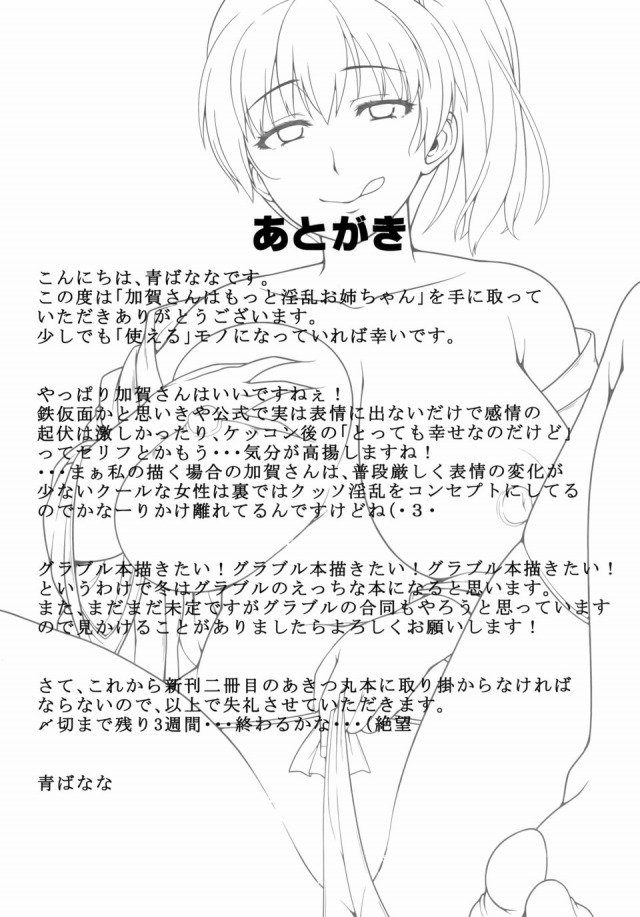 あとがき
こんにちは、青ばななです。
この度は「加賀さんはもっと淫乱お姉ちゃん」を手に取って
いただきありがとうございます。
少しでも「使える」モノになっていれば幸いです。
やっぱり加賀さんはいいですねぇ！
鉄仮面かと思いきや公式で実は表情に出ないだけで感情の
起伏は激しかったり、ケッコン後の「とっても幸せなのだけど」
ってセリフとかもう・・・気分が高揚しますね！
・・・まぁ私の描く場合の加賀さんは、普段厳しく表情の変化が
少ないクールな女性は裏ではクッソ淫乱をコンセプトにしてる
のでかなーりかけ離れてるんですけどね(・３・
グラブル本描きたい！グラブル本描きたい！グラブル本描きたい！
というわけで冬はグラブルのえっちな本になると思います。
また、まだまだ未定ですがグラブルの合同もやろうと思っています
ので見かけることがありましたらまろしくお願いします！
さて、これから新刊二冊目のあきつ丸本に取り掛からなければ
ならないので、以上で失礼させていただきます。
〆切まで残り3週間・・・終わるかな・・・(絶望
青ばなな